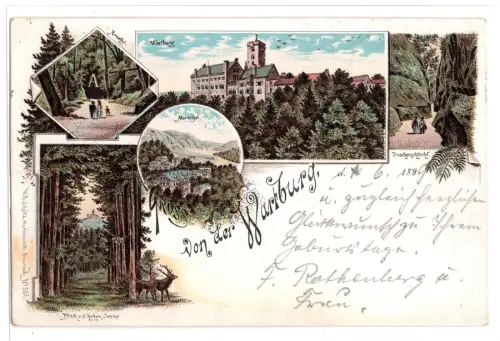 Wartburg
Marienthal
Drachenschlucht
Gruss
von der Wartburg.
d. 6. 189
u. zugleich herzlichen
Glückwunsch zu Ihrem
Geburtstage.
F. Rothenberg u.
Frau.
Blick v. d. hohen Sonne